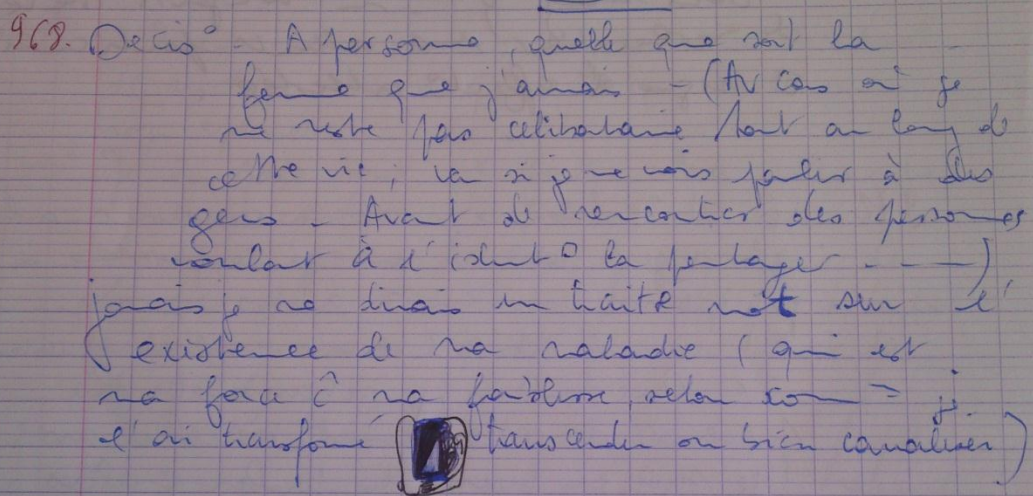 968. Décis° - A personne, quelle que soit la
femme que j'aurais - (Au cas où je
ne reste pas célibataire tout au long de
cette vie, si je vais parler à des
gens - Avant de rencontrer des personnes
voulant à l' la partager - - - -)
jamais je ne dirais un traite mot sur l'
existence de ma maladie (qui est
ma force ma faiblesse, selon je
l'ai transformé transcender ou bien canaliser)